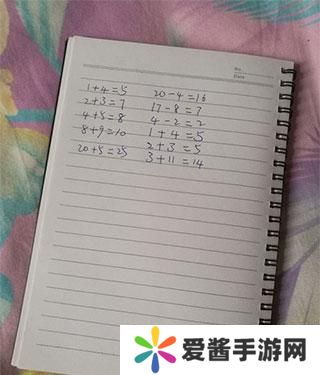 No.
Date
1+4=5 20-4=16
2+3=7 17-8=7
4+5=8 4-2=2
8+9=10 1+4=5
20+5=25 2+3=5
3+11=14
爱酱手游网